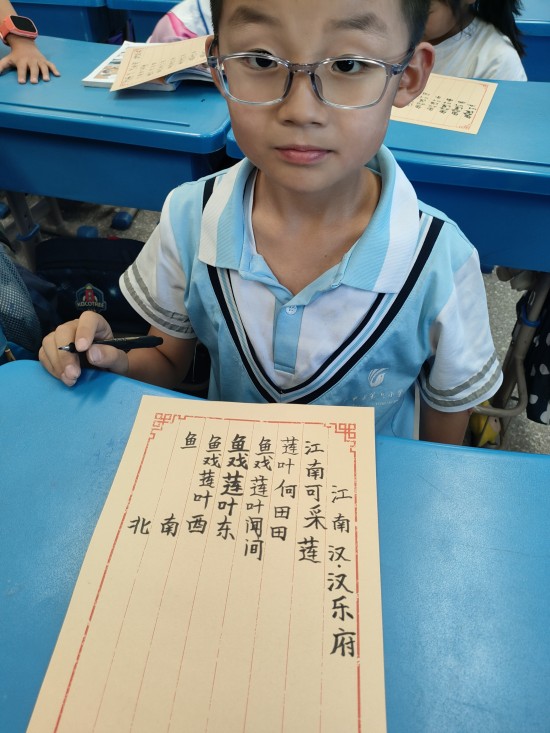 江南 汉·汉乐府
江南可采莲
莲叶何田田
鱼戏莲叶闻间
鱼戏莲叶东
鱼戏莲叶西
鱼 南
北